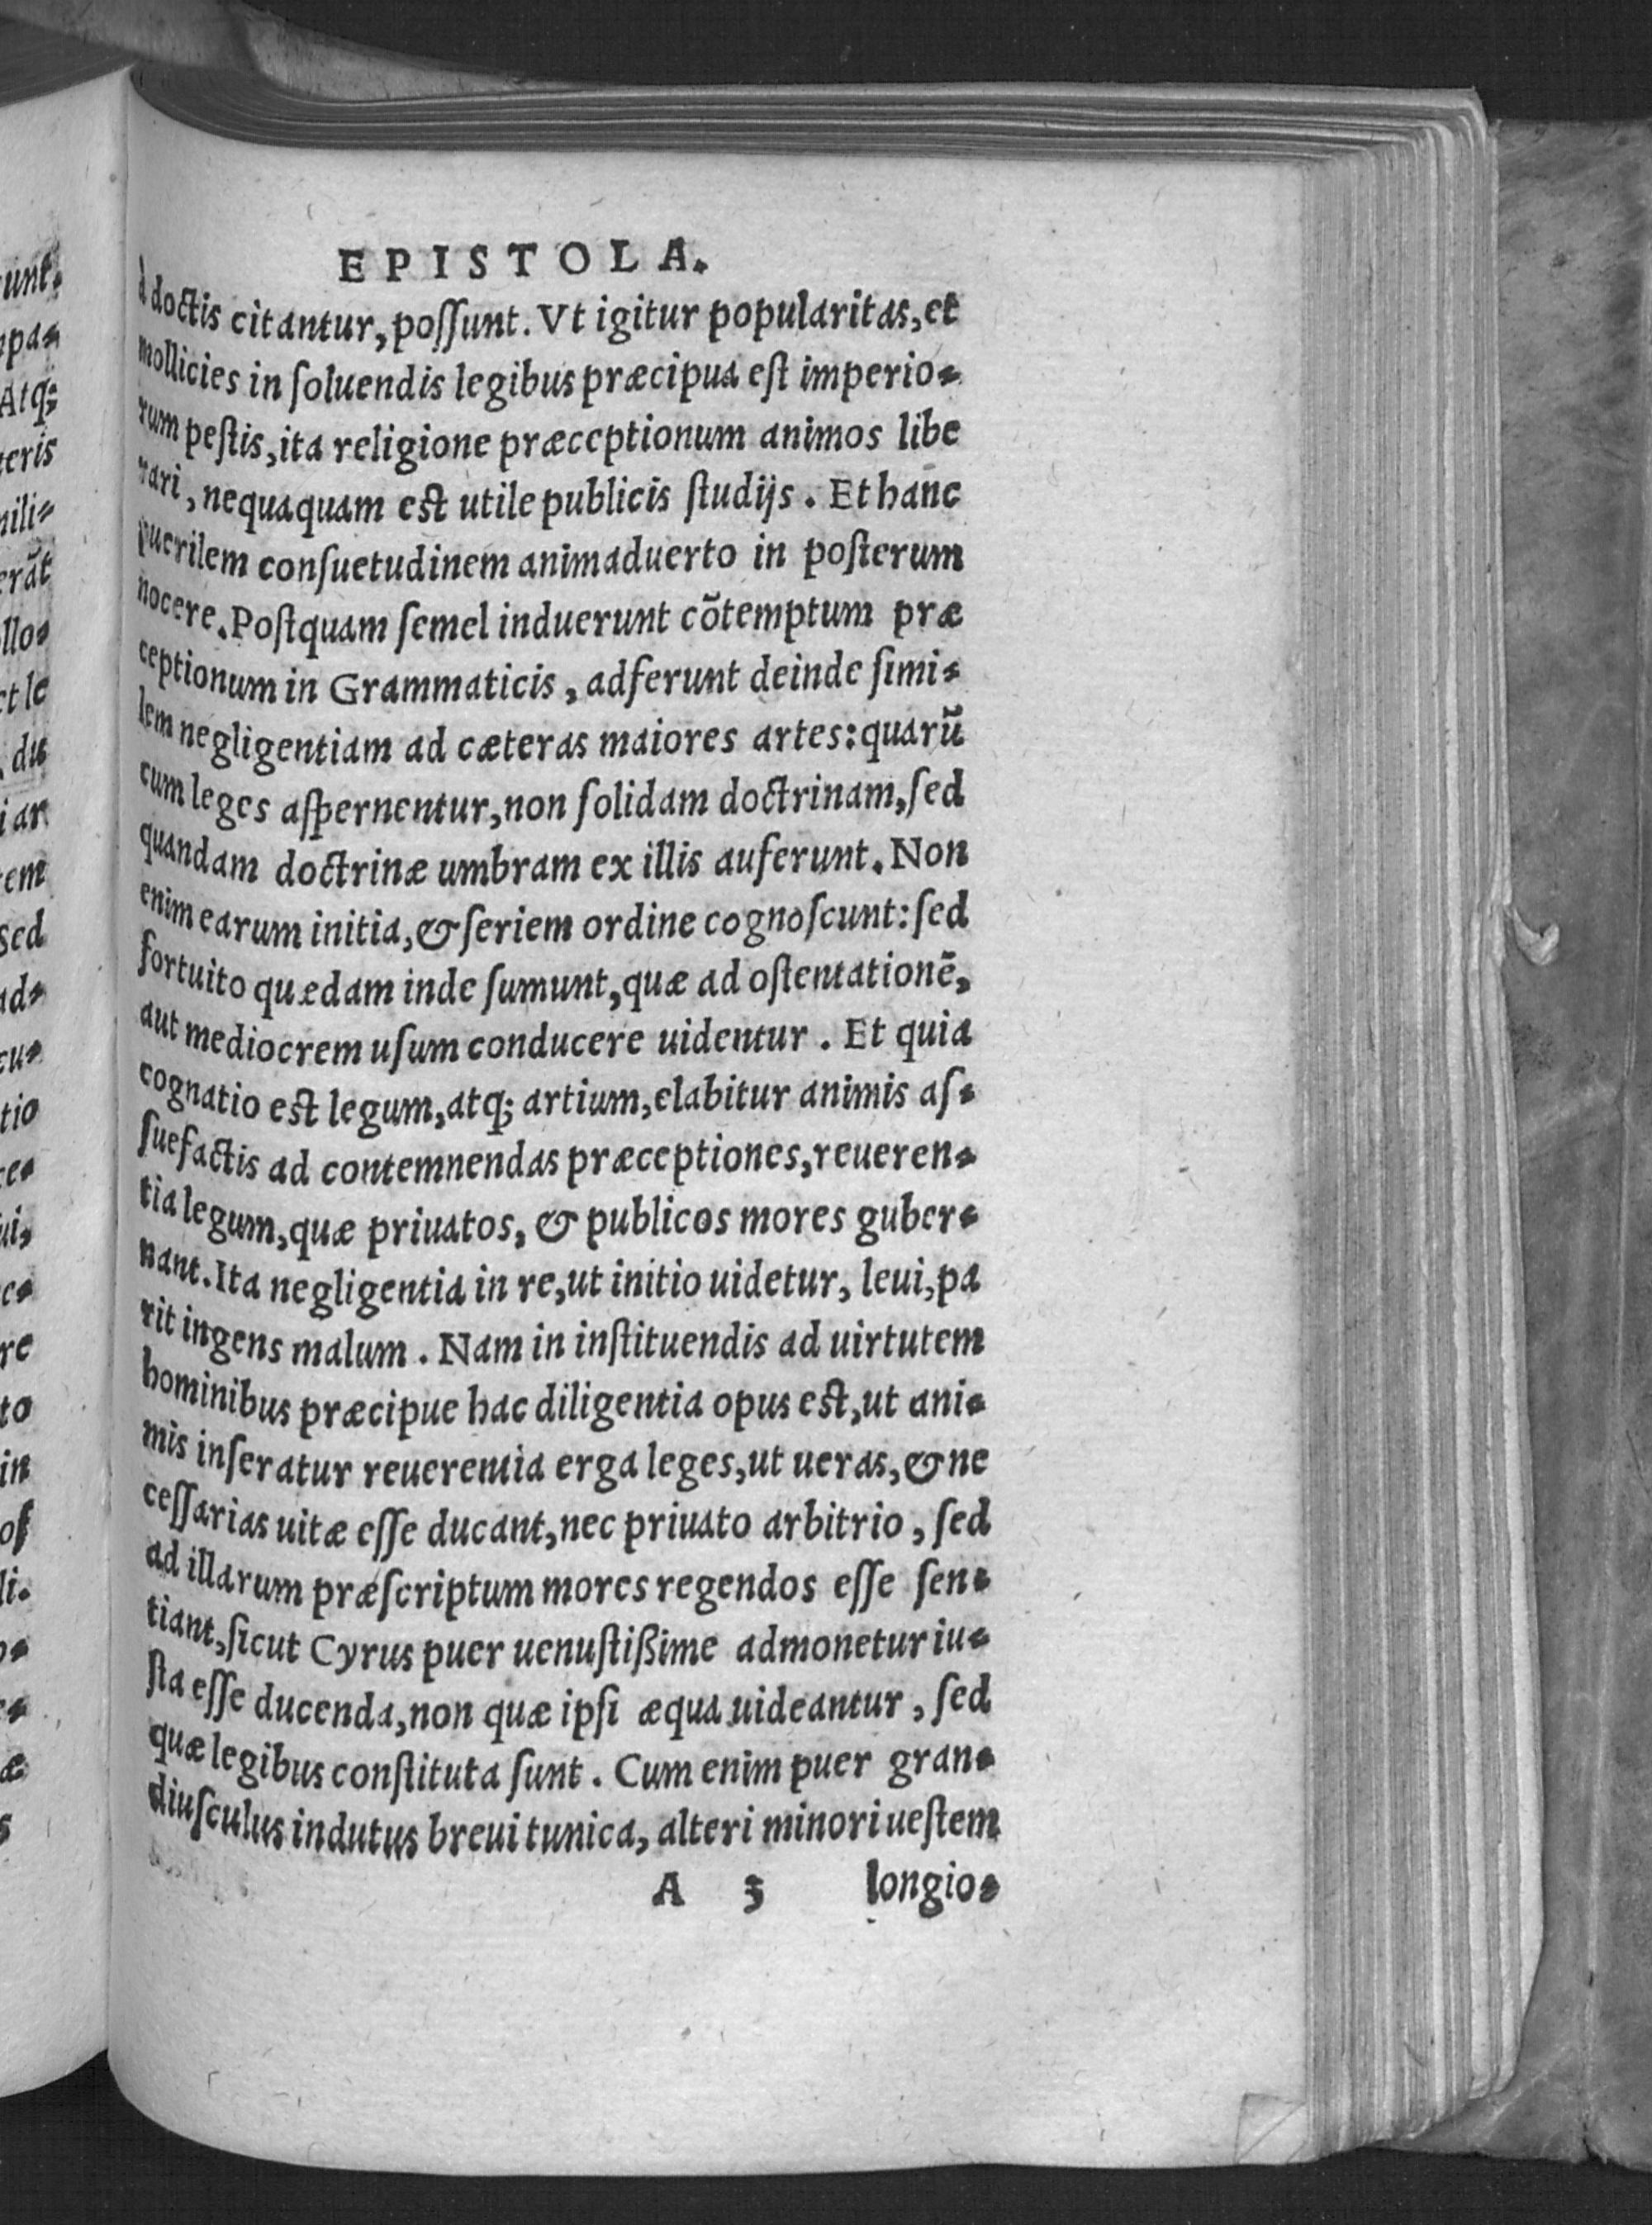 EPISTOLA.
à doctis citantur, poſſunt. Vt igitur popularitas, et
mollicies in ſoluendis legibus præcipua eſt imperio-
rum peſtis, ita religione præceptionum animos libe
rari, nequaquam est utile publicis ſtudijs. Et hanc
puerilem conſuetudinem animaduerto in poſterum
nocere. Poſtquam ſemel induerunt cõtemptum præ
ceptionum in Grammaticis, adferunt deinde ſimi-
lem negligentiam ad cæteras maiores artes: quarũ
cum leges aſpernentur, non ſolidam doctrinam, ſed
quandam doctrinæ umbram ex illis auferunt. Non
enim earum initia, & ſeriem ordine cognoſcunt: ſed
fortuito quædam inde ſumunt, quæ ad oſtentationẽ,
aut mediocrem uſum conducere uidentur. Et quia
cognatio est legum, atq; artium, elabitur animis aſ-
ſuefactis ad contemnendas præceptiones, reueren-
tia legum, quæ priuatos, & publicos mores guber-
nant. Ita negligentia in re, ut initio uidetur, leui, pa
rit ingens malum. Nam in inſtituendis ad uirtutem
hominibus præcipue hac diligentia opus est, ut ani-
mis inſeratur reuerentia erga leges, ut ueras, & ne
ceſſarias uitæ eſſe ducant, nec priuato arbitrio, ſed
ad illarum præſcriptum mores regendos eſſe ſen-
tiant, ſicut Cyrus puer uenuſtißime admonetur iu-
ſta eſſe ducenda, non quæ ipſi æqua uideantur, ſed
quæ legibus conſtituta ſunt. Cum enim puer gran-
diuſculus indutus breui tunica, alteri minori ueſtem
A 3 longio-